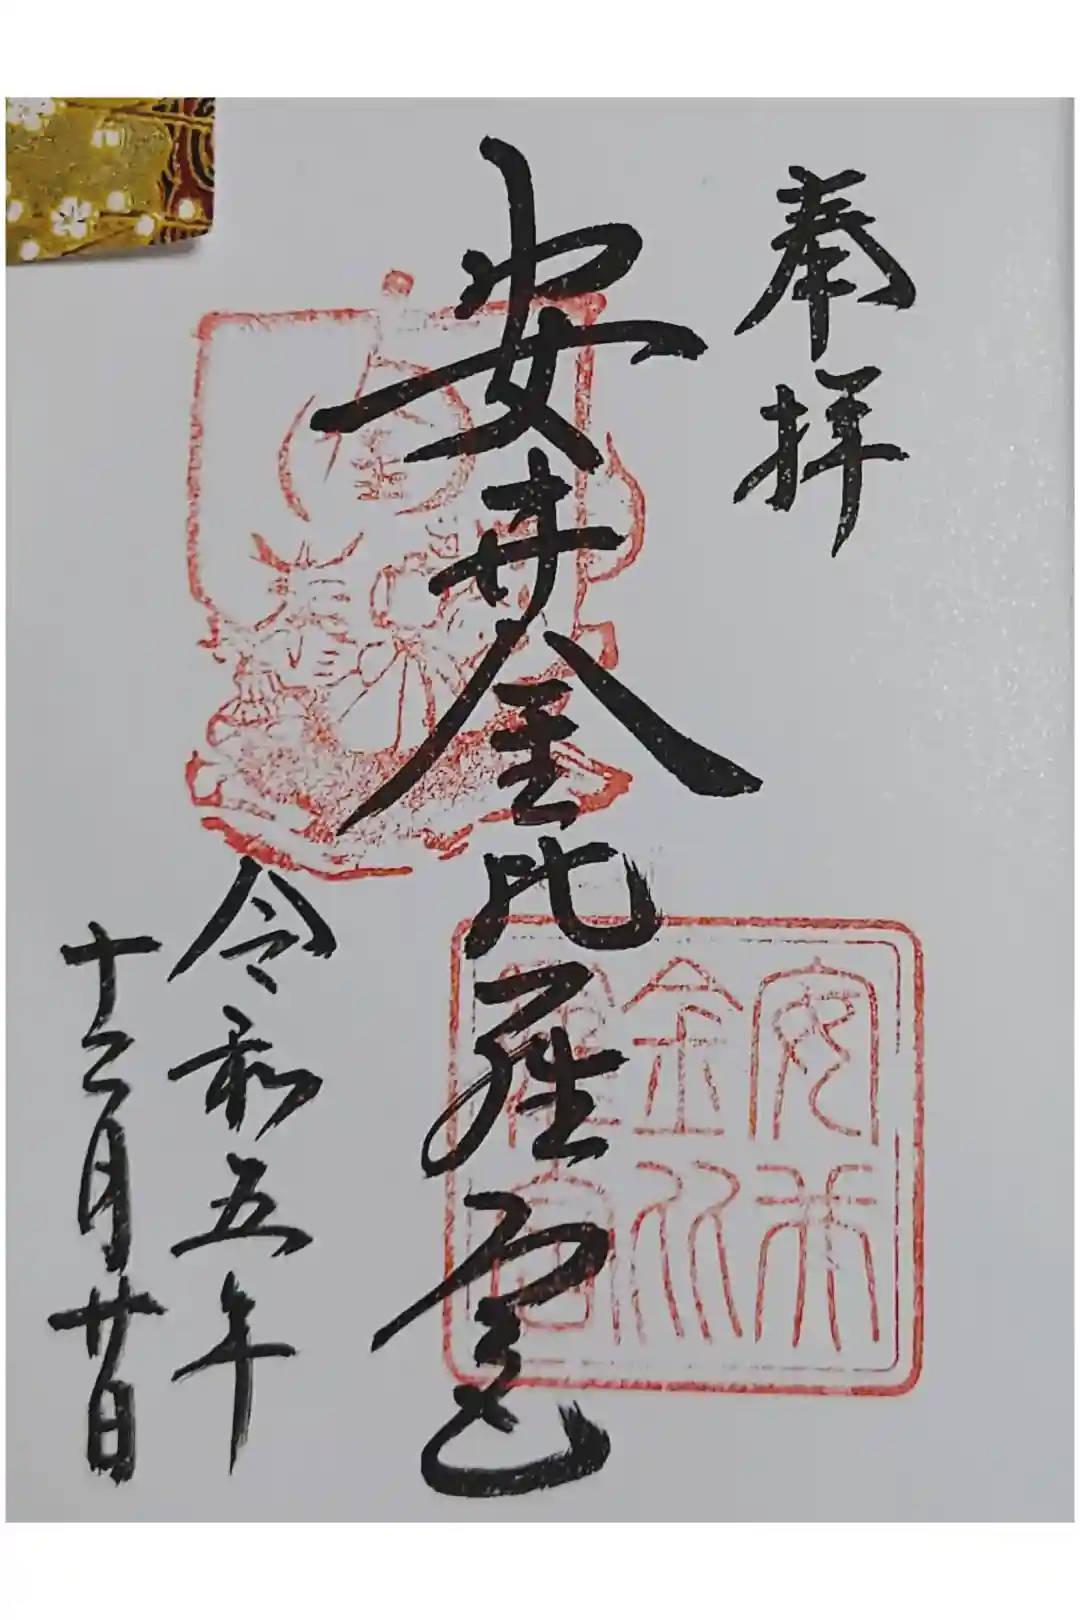 奉拝
安井金比羅宮
令和五年
十二月廿日
安井
金比
羅宮